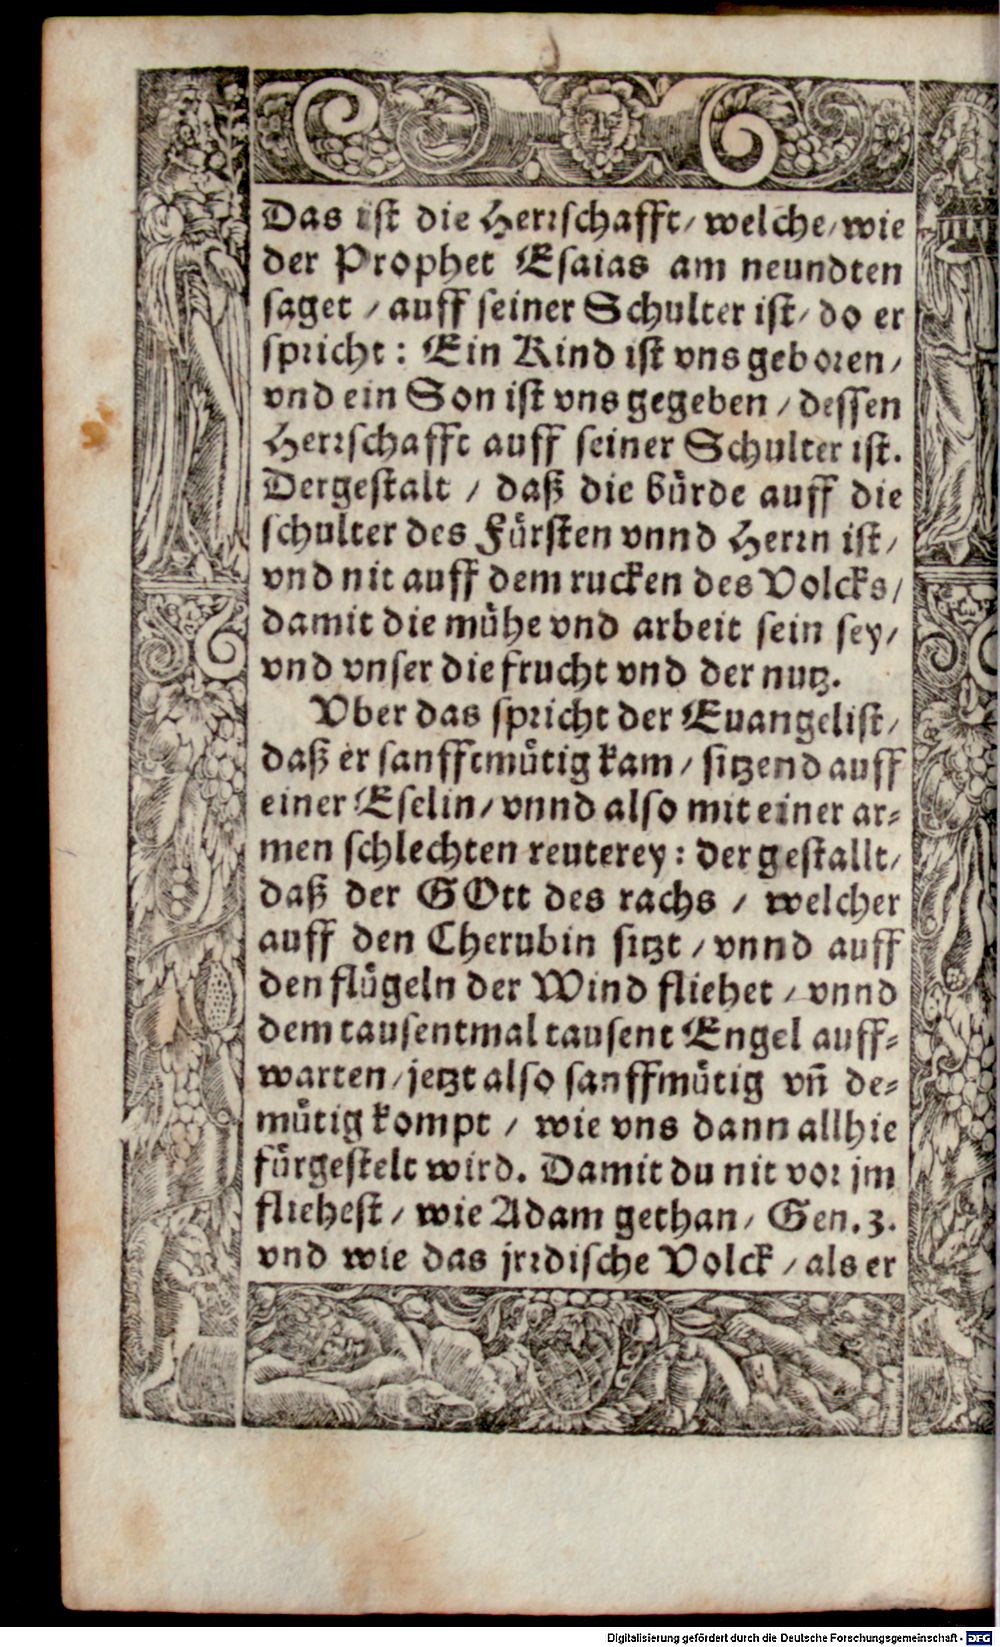 Das ist die Herrschafft/ welche/ wie
der Prophet Esaias am neundten
saget / auff seiner Schulter ist/ do er
spricht: Ein Kind ist vns geboren/
vnd ein Son ist vns gegeben / dessen
Herrschafft auff seiner Schulter ist.
Dergestalt / daß die bürde auff die
schulter des Fürsten vnnd Herrn ist/
vnd nit auff dem rucken des Volcks/
damit die mühe vnd arbeit sein sey/
vnd vnser die frucht vnd der nutz.
Vber das spricht der Euangelist/
daß er sanfftmütig kam / sitzend auff
einer Eselin/ vnnd also mit einer ar-
men schlechten reuterey: der gestallt/
daß der GOtt des rachs / welcher
auff den Cherubin sitzt / vnnd auff
den flügeln der Wind fliehet / vnnd
dem tausentmal tausent Engel auff-
warten/ jetzt also sanffmütig vñ de-
mütig kompt / wie vns dann allhie
fürgestelt wird. Damit du nit vor jm
fliehest / wie Adam gethan/ Gen. 3.
vnd wie das jrrdische Volck / als er
Digitalisierung gefördert durch die Deutsche Forschungsgemeinschaft - DFG